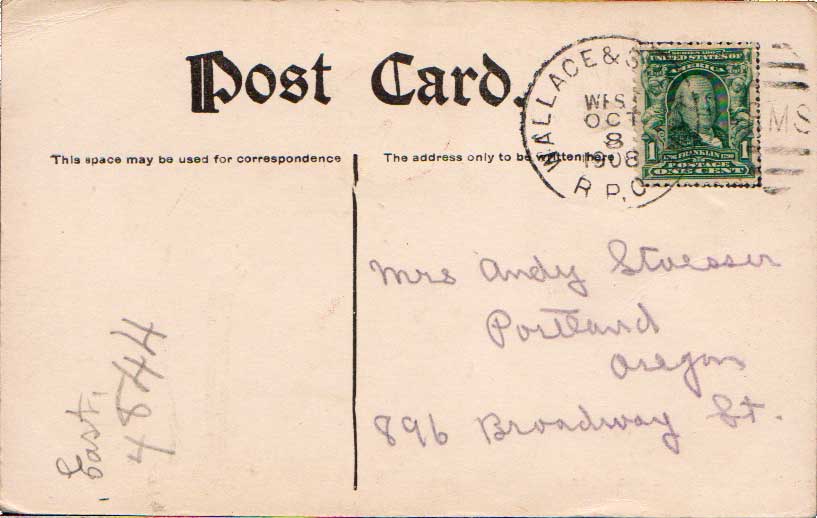 Post Card.
This space may be used for correspondence
The address only to be written here
WALLACE &
WEST
OCT
8
1908
R.P.O.
MS
UNITED STATES OF
AMERICA
1 1
POSTAGE
ONE CENT
Mrs Andy Stoesser
Portland
Oregon
896 Broadway St.
East,
4844